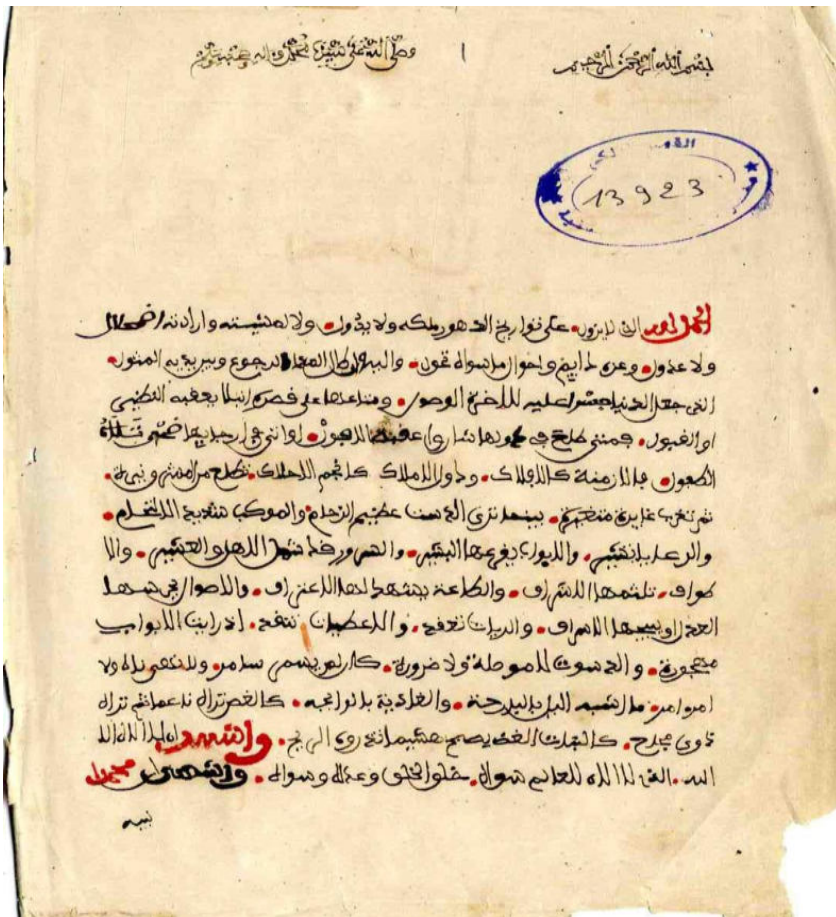 بسم الله الرحمن الرحيم وصلى الله على نبينا محمد واله وصحبه وسلم
13923
الحمد لله الذي لا يزول على تواريخ الدهور ملكه ولا يدول ولا لمشيئته وارادته اضمحلال
ولا عدول وعزه دايم واحوال ما سواه تحول واليه وان طال الرجوع وبين يديه المثول
الذي جعل الدنيا جسرا عليه للاخرة الوصول ومتاعها على قصره ابتلا يعقبه
او القبول فمتى طلع في
بالازمنة كالافلاك ودول الاملاك كانجم الاحلاك تطلع من المشرق ونيرة
ثم تغرب غايرة متغيرة بينما ترى الدست عظيم الزحام والموكب شديد الالتحام
والرعد والابواب يقرعها البشير والسرور قد شمل الاهل والعشير والا
طراف تلثمها الاشراف والطاعة يشهدها الاعتراف والاموال يحوسها
العدل او يبيحها الاسراف والرايات تعقد والاعطيات تنقد اذ رايت الابواب
مهجورة والدسوت لا موطاة ولا مزورة كان لم يسمر سامر ولا نهى ناه ولا
امر امر ما اشبه الليلة بالبارحة والغادية بالرايحة كالغصن تراه ناعما ثم تراه
ذوى كالنبات الغض يصبح هشيما تذروه الريح واشهد ان لا اله الا
الله الذي لا اله للعالم سواه خلق الخلق وعدله وسواه واشهد ان محمدا
نبيه